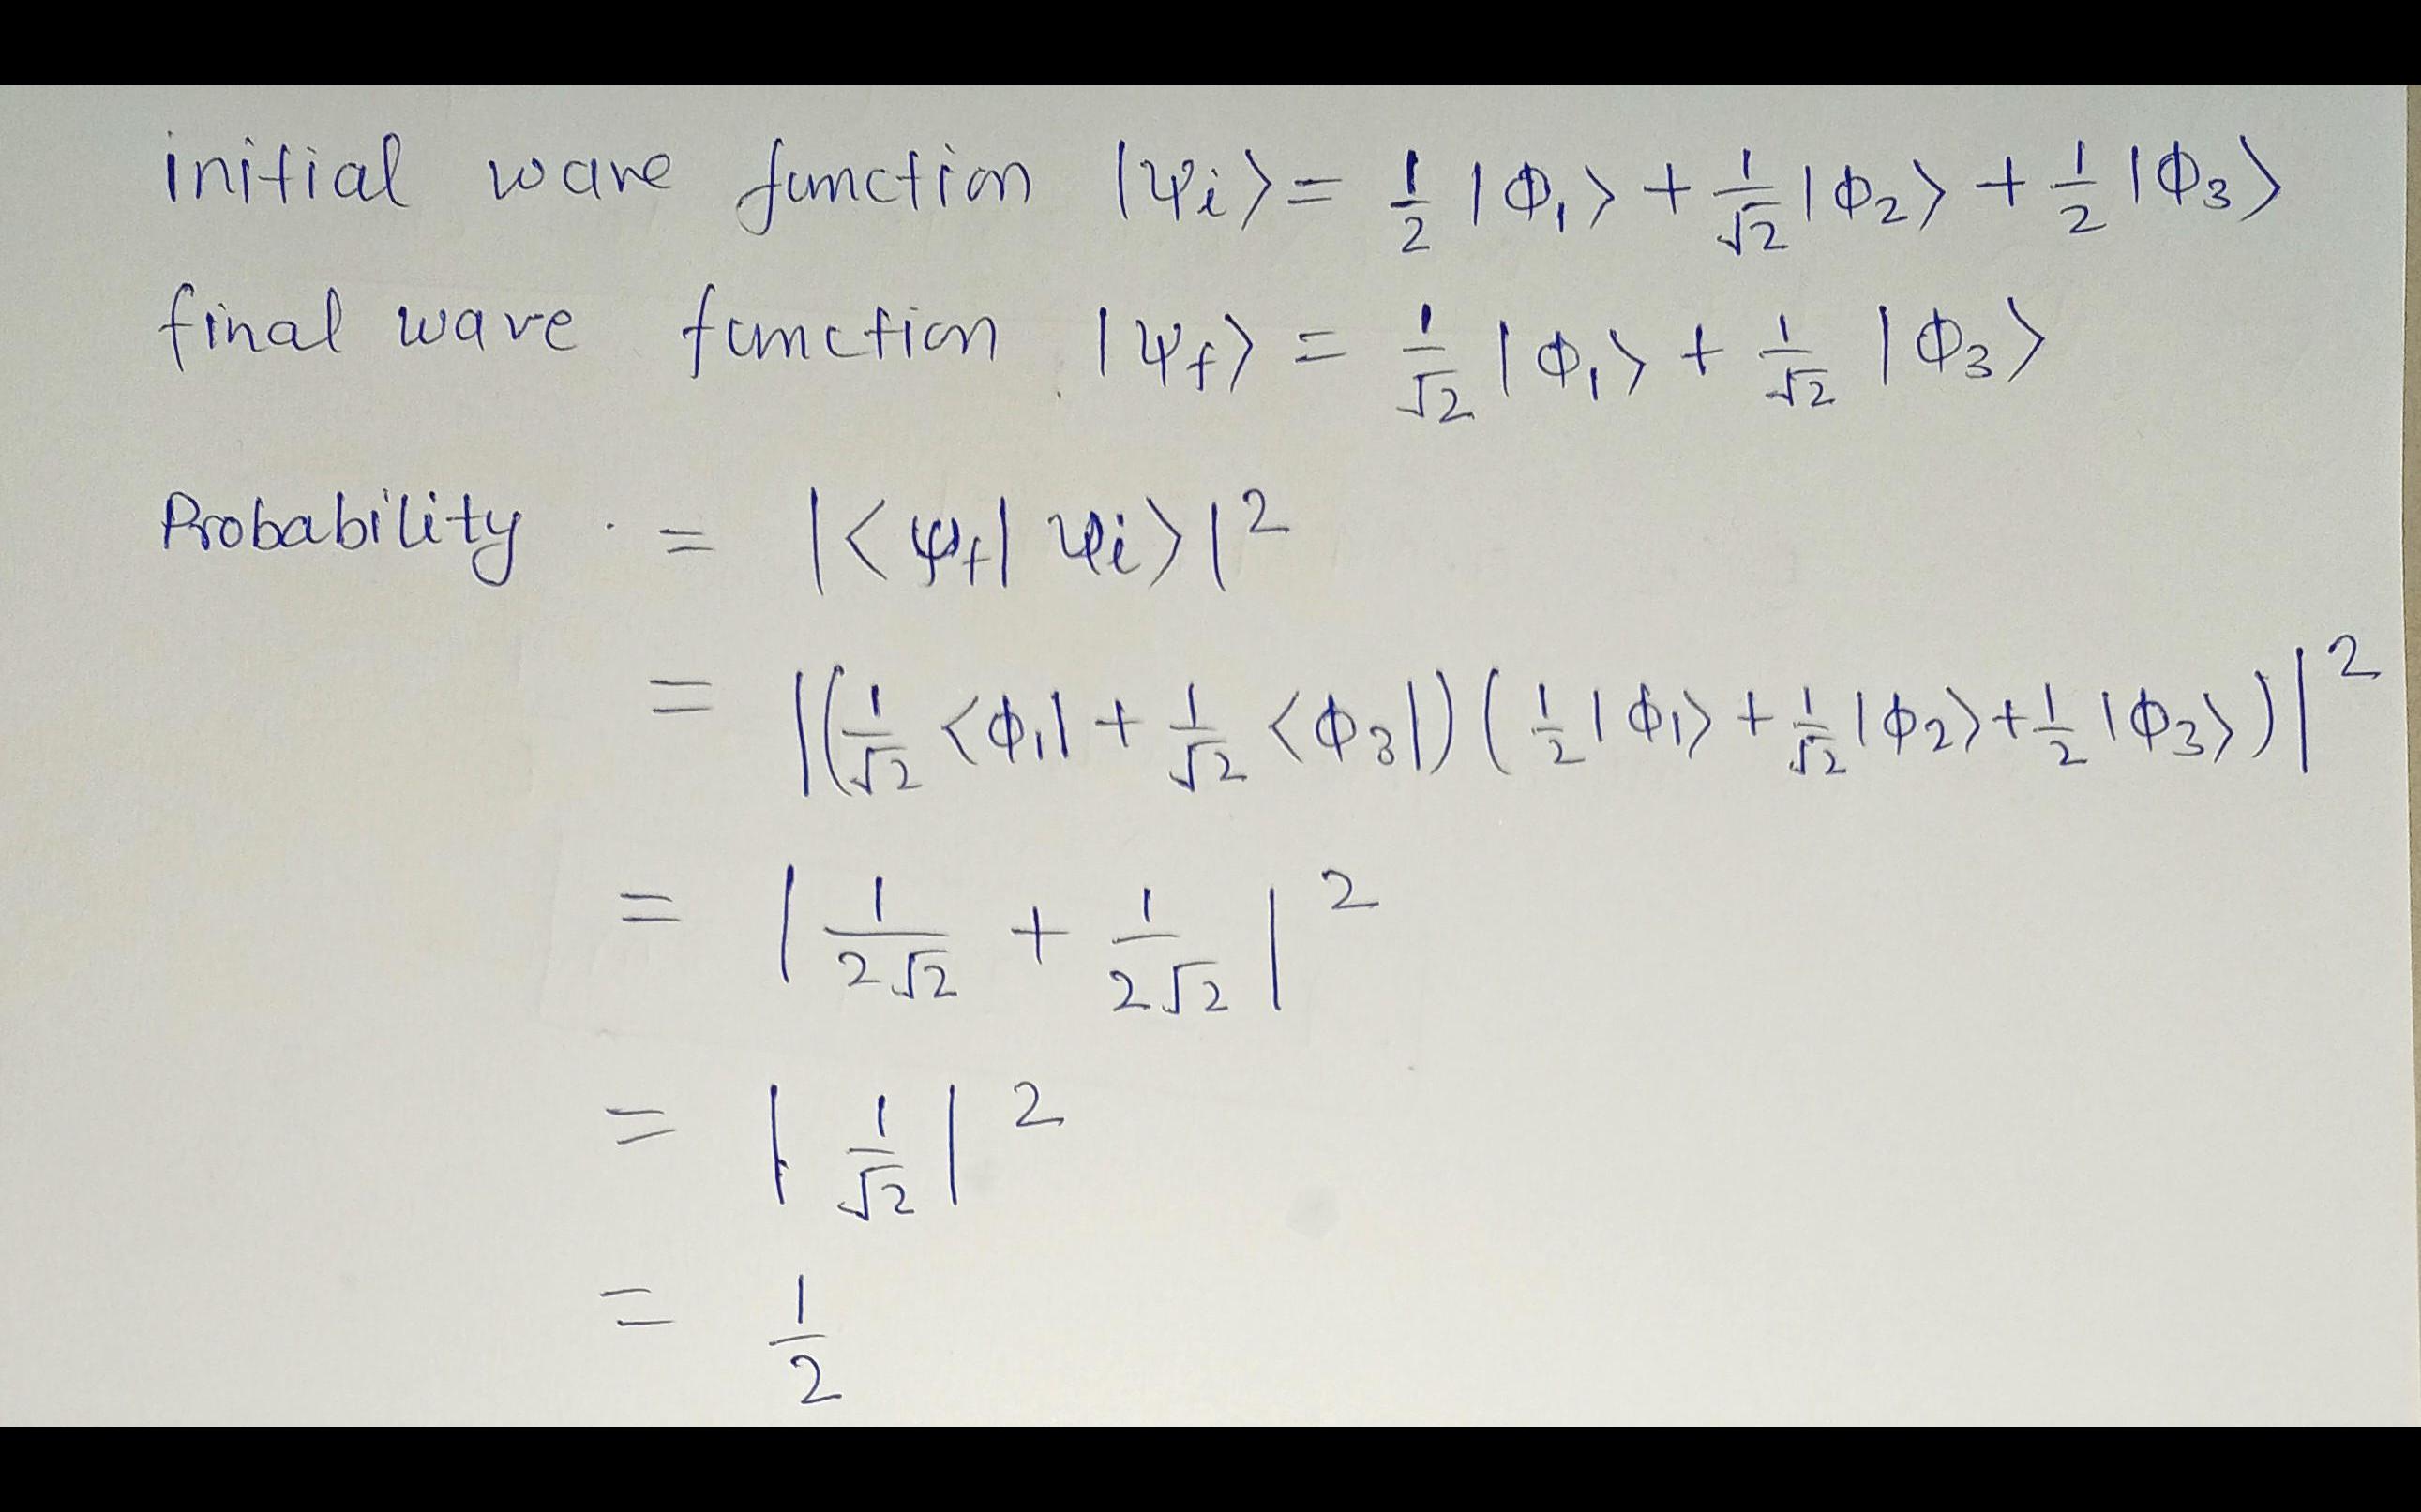 initial wave function |ψi⟩ = 1/2 |Φ₁⟩ + 1/√2 |Φ₂⟩ + 1/2 |Φ₃⟩
final wave function |ψf⟩ = 1/√2 |Φ₁⟩ + 1/√2 |Φ₃⟩
Probability = |⟨ψf|ψi⟩|²
= |(1/√2 ⟨Φ₁| + 1/√2 ⟨Φ₃|) (1/2 |Φ₁⟩ + 1/√2 |Φ₂⟩ + 1/2 |Φ₃⟩)|²
= |1/2√2 + 1/2√2|²
= |1/√2|²
= 1/2